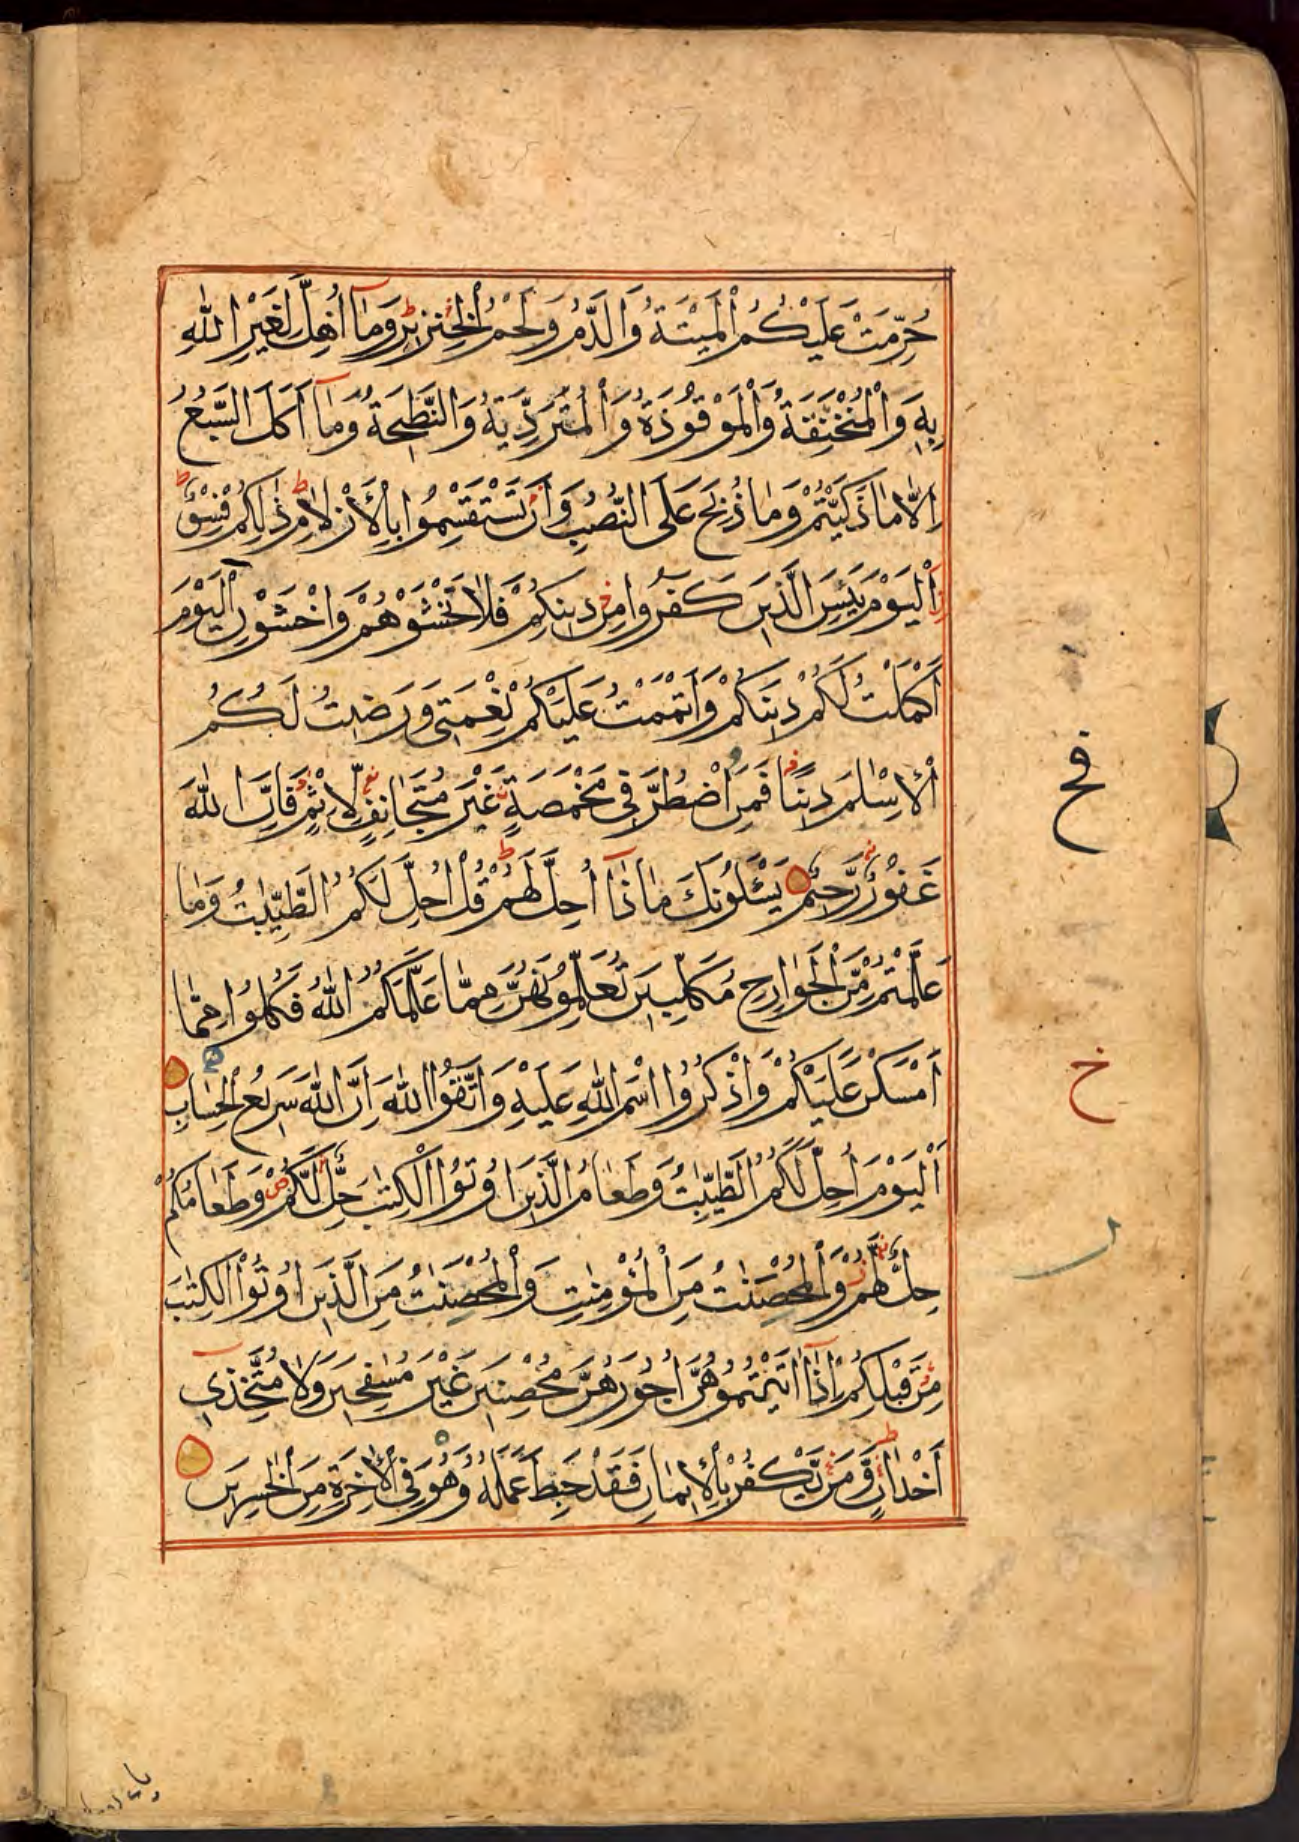 حُرِّمَتْ عَلَيْكُمُ الْمَيْتَةُ وَالدَّمُ وَلَحْمُ الْخِنْزِيْرِ وَمَآ اُهِلَّ لِغَيْرِ اللهِ
بِهٖ وَالْمُنْخَنِقَةُ وَالْمَوْقُوْذَةُ وَالْمُتَرَدِّيَةُ وَالنَّطِيْحَةُ وَمَآ اَكَلَ السَّبُعُ
اِلَّا مَا ذَكَّيْتُمْ وَمَا ذُبِحَ عَلَى النُّصُبِ وَاَنْ تَسْتَقْسِمُوْا بِالْاَزْلَامِ ذٰلِكُمْ فِسْقٌ
اَلْيَوْمَ يَئِسَ الَّذِيْنَ كَفَرُوْا مِنْ دِيْنِكُمْ فَلَا تَخْشَوْهُمْ وَاخْشَوْنِ اَلْيَوْمَ
اَكْمَلْتُ لَكُمْ دِيْنَكُمْ وَاَتْمَمْتُ عَلَيْكُمْ نِعْمَتِيْ وَرَضِيْتُ لَكُمُ
الْاِسْلَامَ دِيْنًا فَمَنِ اضْطُرَّ فِيْ مَخْمَصَةٍ غَيْرَ مُتَجَانِفٍ لِّاِثْمٍ فَاِنَّ اللهَ
غَفُوْرٌ رَّحِيْمٌ يَسْئَلُوْنَكَ مَا ذَآ اُحِلَّ لَهُمْ قُلْ اُحِلَّ لَكُمُ الطَّيِّبٰتُ وَمَا
عَلَّمْتُمْ مِّنَ الْجَوَارِحِ مُكَلِّبِيْنَ تُعَلِّمُوْنَهُنَّ مِمَّا عَلَّمَكُمُ اللهُ فَكُلُوْا مِمَّا
اَمْسَكْنَ عَلَيْكُمْ وَاذْكُرُوا اسْمَ اللهِ عَلَيْهِ وَاتَّقُوا اللهَ اِنَّ اللهَ سَرِيْعُ الْحِسَابِ
اَلْيَوْمَ اُحِلَّ لَكُمُ الطَّيِّبٰتُ وَطَعَامُ الَّذِيْنَ اُوْتُوا الْكِتٰبَ حِلٌّ لَّكُمْ وَطَعَامُكُمْ
حِلٌّ لَّهُمْ وَالْمُحْصَنٰتُ مِنَ الْمُؤْمِنٰتِ وَالْمُحْصَنٰتُ مِنَ الَّذِيْنَ اُوْتُوا الْكِتٰبَ
مِنْ قَبْلِكُمْ اِذَآ اٰتَيْتُمُوْهُنَّ اُجُوْرَهُنَّ مُحْصِنِيْنَ غَيْرَ مُسٰفِحِيْنَ وَلَا مُتَّخِذِيْٓ
اَخْدَانٍ وَّمَنْ يَّكْفُرْ بِالْاِيْمَانِ فَقَدْ حَبِطَ عَمَلُهٗ وَهُوَ فِي الْاٰخِرَةِ مِنَ الْخٰسِرِيْنَ
فخ
خ
ر